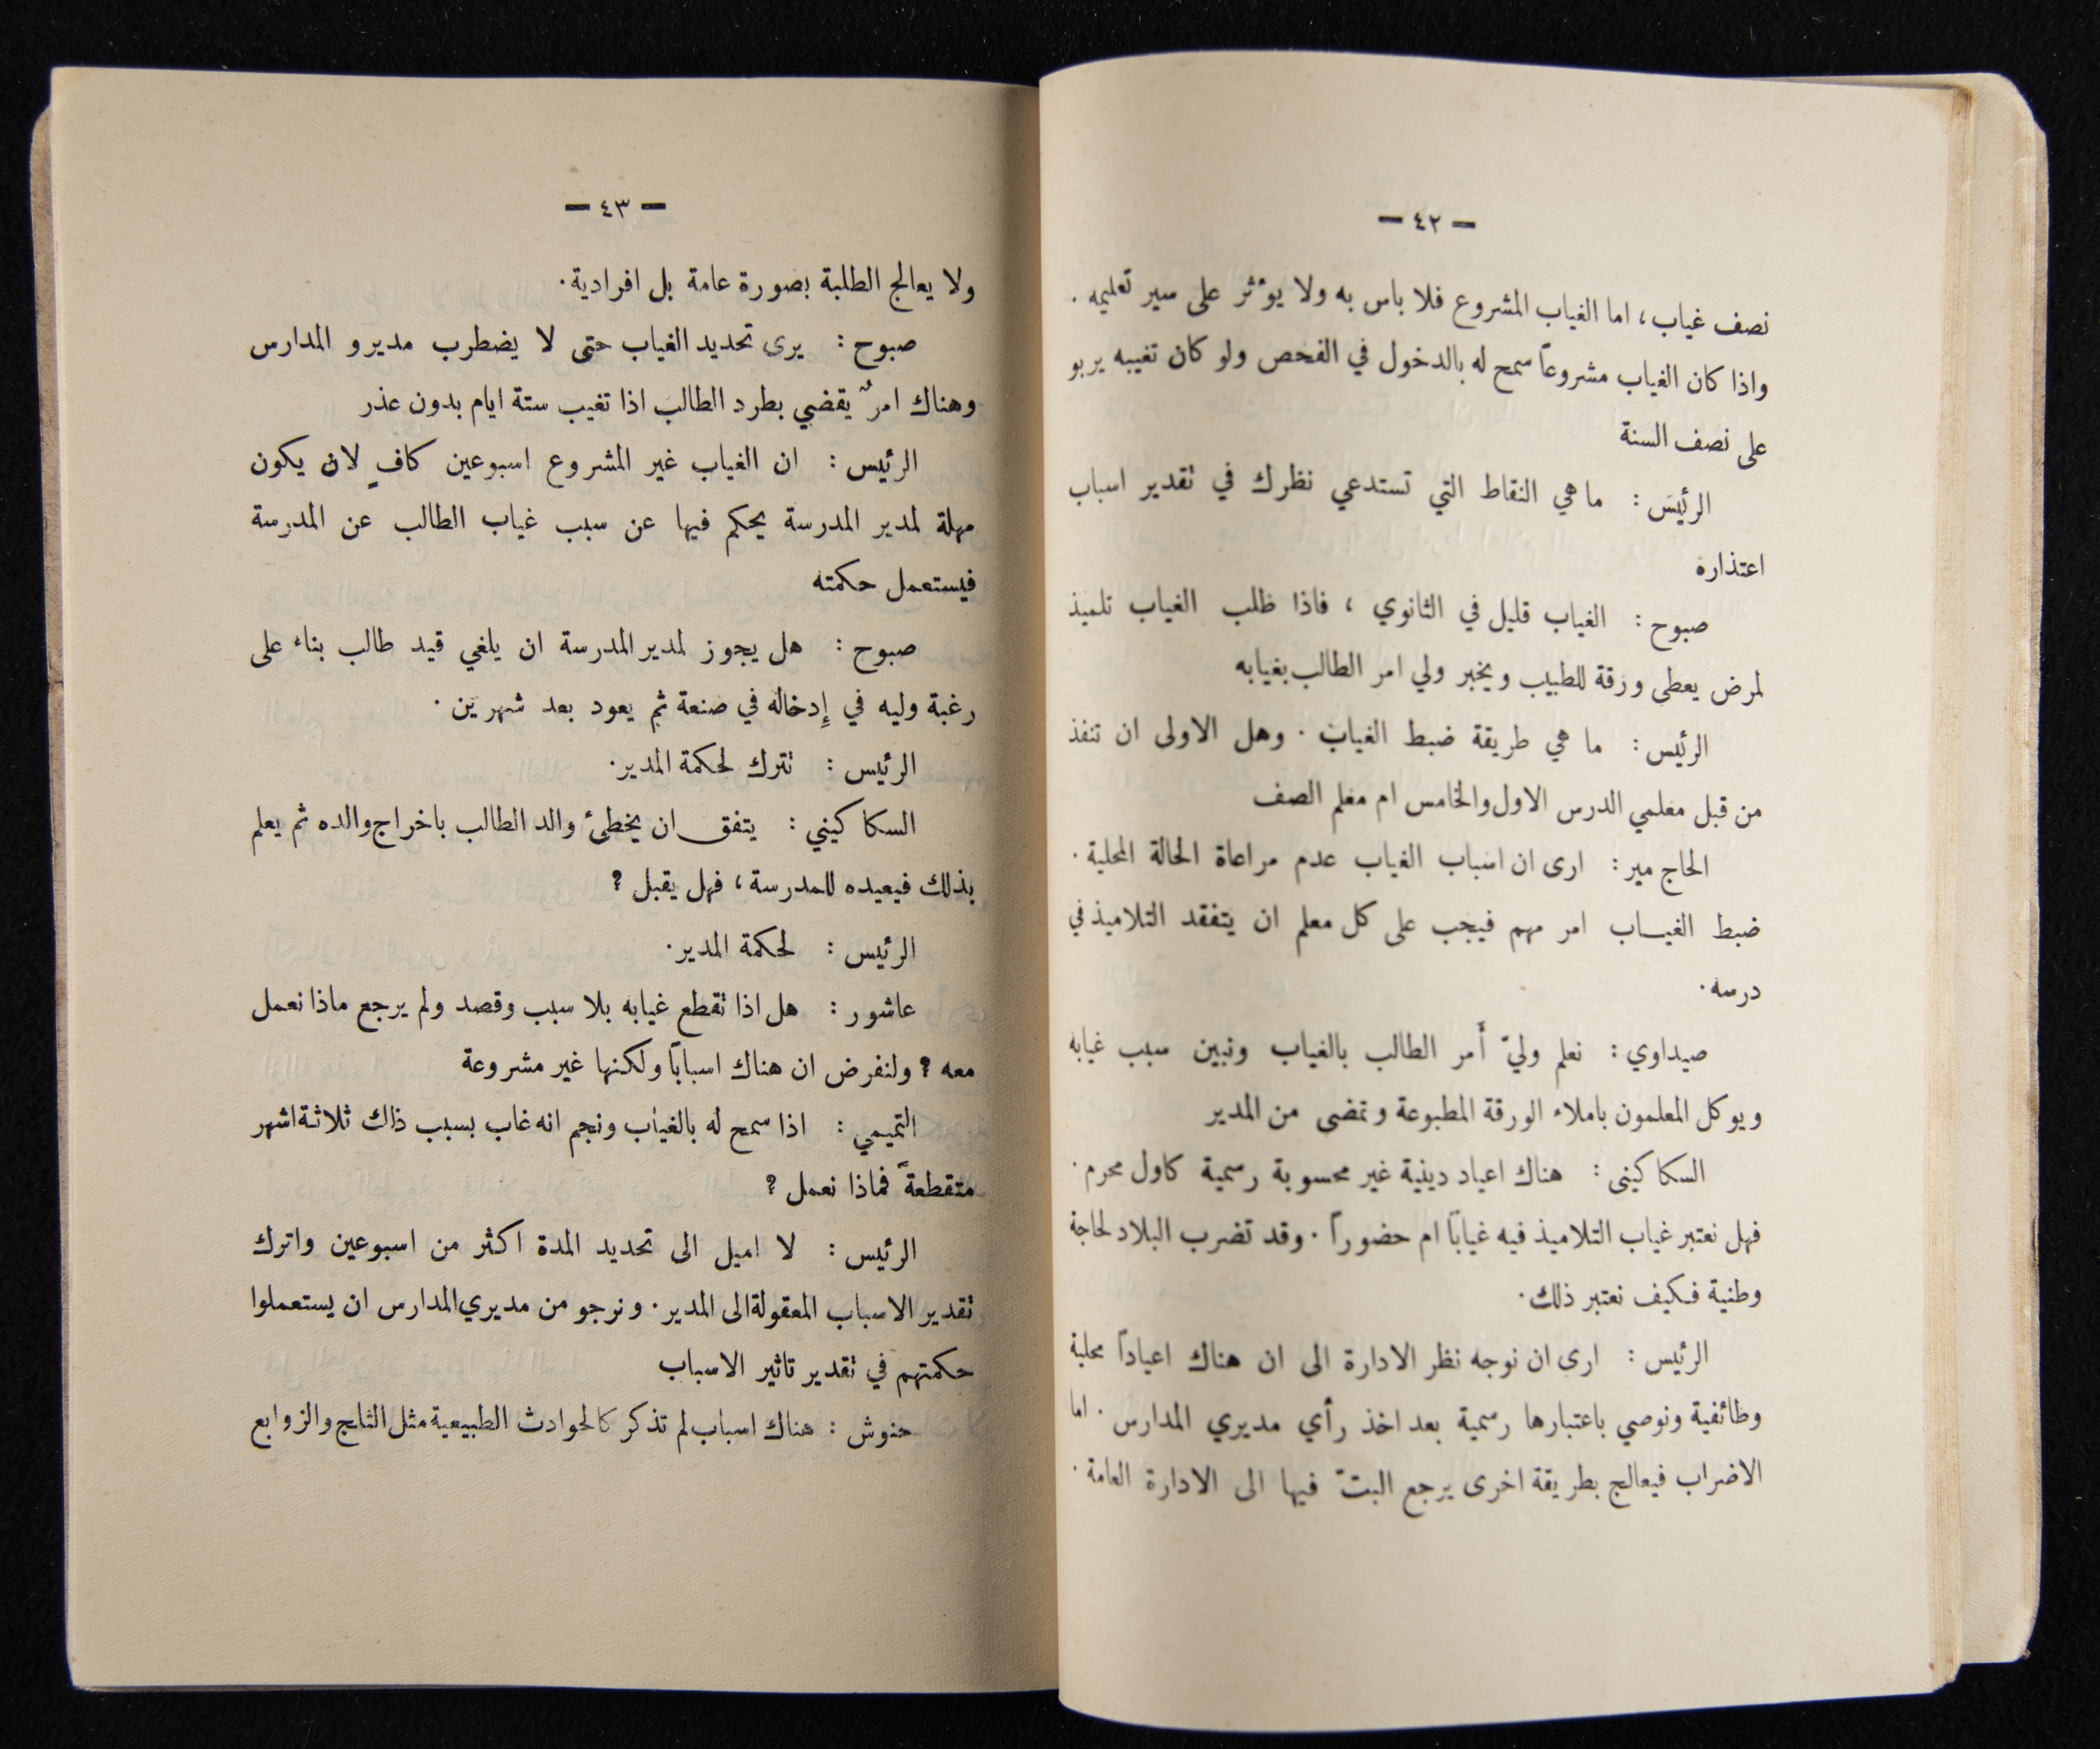 — ٤٢ —
نصف غياب، اما الغياب المشروع فلا باس به ولا يوءثر على سير تعليمه .
واذا كان الغياب مشروعاً سمح له بالدخول في الفحص ولو كان تغيبه يربو
على نصف السنة
الرئيس : ما هي النقاط التي تستدعي نظرك في تقدير اسباب
اعتذاره
صبوح : الغياب قليل في الثانوي ، فاذا طلب الغياب تلميذ
لمرض يعطى ورقة للطبيب ويخبر ولي امر الطالب بغيابه
الرئيس : ما هي طريقة ضبط الغياب . وهل الاولى ان تنفذ
من قبل معلمي الدرس الاول والخامس ام معلم الصف
الحاج مير : ارى ان اسباب الغياب عدم مراعاة الحالة المحلية .
ضبط الغياب امر مهم فيجب على كل معلم ان يتفقد التلاميذ في
درسه .
صيداوي : نعلم وليّ أمر الطالب بالغياب ونبين سبب غيابه
ويوكل المعلمون باملاء الورقة المطبوعة وتمضى من المدير
السكاكيني : هناك اعياد دينية غير محسوبة رسمية كاول محرم .
فهل نعتبر غياب التلاميذ فيه غياباً ام حضوراً . وقد تضرب البلاد لحاجة
وطنية فكيف نعتبر ذلك .
الرئيس : ارى ان نوجه نظر الادارة الى ان هناك اعياداً محلية
وطائفية ونوصي باعتبارها رسمية بعد اخذ رأي مديري المدارس . اما
الاضراب فيعالج بطريقة اخرى يرجع البتّ فيها الى الادارة العامة .
— ٤٣ —
ولا يعالج الطلبة بصورة عامة بل افرادية .
صبوح : يرى تحديد الغياب حتى لا يضطرب مديرو المدارس
وهناك امرٌ يقضي بطرد الطالب اذا تغيب ستة ايام بدون عذر
الرئيس : ان الغياب غير المشروع اسبوعين كافٍ لان يكون
مهلة لمدير المدرسة يحكم فيها عن سبب غياب الطالب عن المدرسة
فيستعمل حكمته
صبوح : هل يجوز لمدير المدرسة ان يلغي قيد طالب بناء على
رغبة وليه في إدخاله في صنعة ثم يعود بعد شهرين .
الرئيس : تترك لحكمة المدير .
السكاكيني : يتفق ان يخطئ والد الطالب باخراج والده ثم يعلم
بذلك فيعيده للمدرسة ، فهل يقبل ؟
الرئيس : لحكمة المدير .
عاشور : هل اذا تقطع غيابه بلا سبب وقصد ولم يرجع ماذا نعمل
معه ؟ ولنفرض ان هناك اسباباً ولكنها غير مشروعة
التميمي : اذا سمح له بالغياب ونجم انه غاب بسبب ذاك ثلاثة اشهر
متقطعةً فماذا نعمل ؟
الرئيس : لا اميل الى تحديد المدة اكثر من اسبوعين واترك
تقدير الاسباب المعقولة الى المدير . ونرجو من مديري المدارس ان يستعملوا
حكمتهم في تقدير تاثير الاسباب
حنوش : هناك اسباب لم تذكر كالحوادث الطبيعية مثل الثلج والزوابع